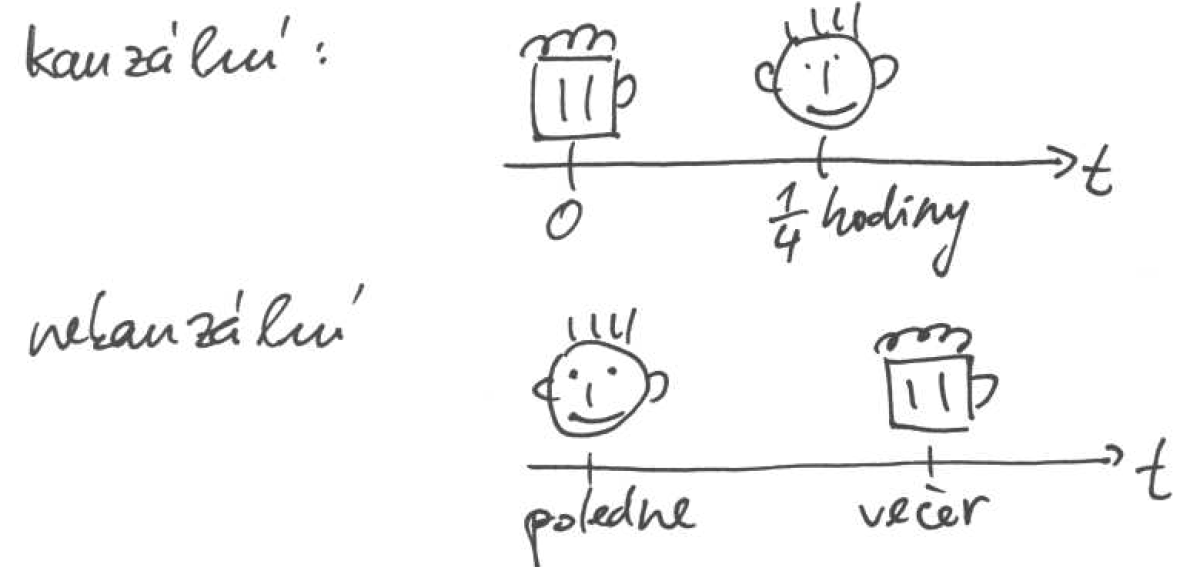 kauzální:
t
0
1/4 hodiny
nekauzální
t
poledne
večer